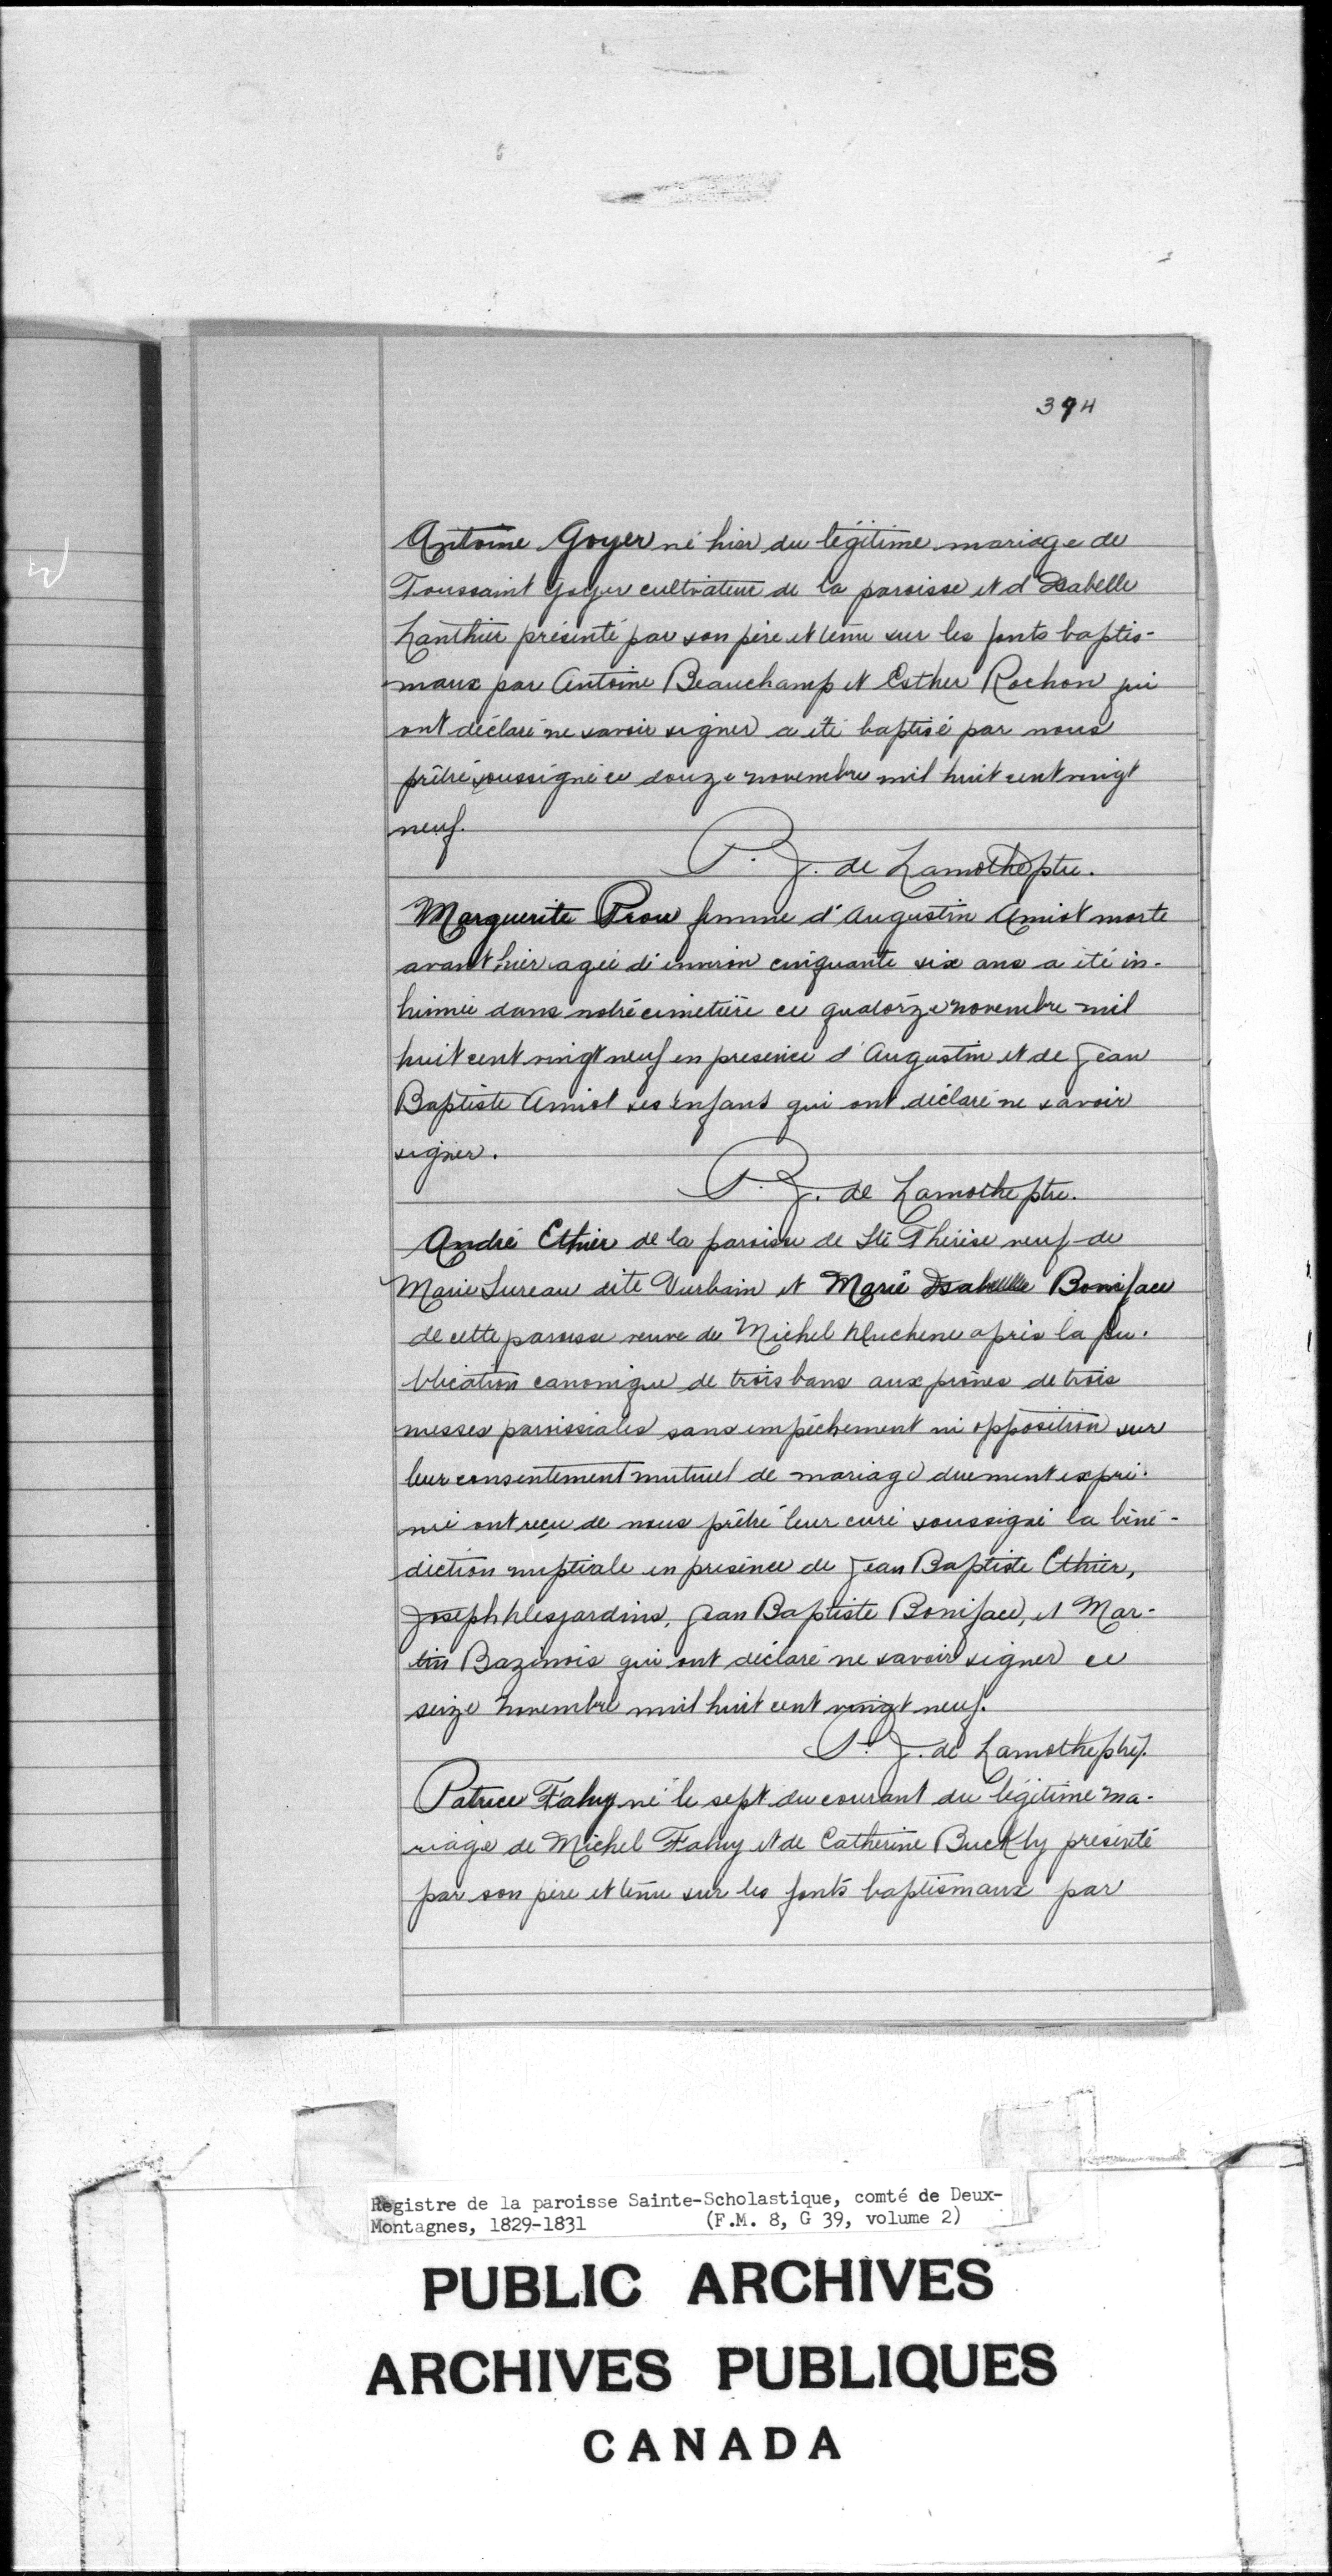 394
Antoine Goyer né hier du légitime mariage de
Toussaint Goyer cultivateur de la paroisse et d'Isabelle
Lanthier présenté par son père et tenu sur les fonts baptis-
maux par Antoine Beauchamp et Esther Rochon qui
ont déclaré ne savoir signer a été baptisé par nous
prêtre soussigné ce douze novembre mil huit cent vingt
neuf.
P. J. de Lamothe ptre.
Marguerite Prou femme d'Augustin Amiot morte
avant hier agée d'environ cinquante six ans a été in-
humée dans notre cimetière ce quatorze novembre mil
huit cent vingt neuf en presence d'Augustin et de Jean
Baptiste Amiot ses enfants qui ont déclaré ne savoir
signer.
P. J. de Lamothe ptre.
André Ethier de la paroisse de Ste Thérèse veuf de
Marie Sureau dite Vurbain et Marie Isabelle Boniface
de cette paroisse veuve de Michel Duchene après la pu-
blication canonique de trois bans aux prônes de trois
messes paroissiales sans empêchement ni opposition sur
leur consentement mutuel de mariage duement expri-
mé ont reçu de nous prêtre leur curé soussigné la béné-
diction nuptiale en présence de Jean Baptiste Ethier,
Joseph Desjardins, Jean Baptiste Boniface, et Mar-
tin Bazinois qui ont déclaré ne savoir signer ce
seize novembre mil huit cent vingt neuf.
P. J. de Lamothe ptre.
Patrice Fahuy né le sept du courant du légitime ma-
riage de Michel Fahuy et de Catherine Buckly présenté
par son père et tenu sur les fonts baptismaux par
Registre de la paroisse Sainte-Scholastique, comté de Deux-
Montagnes, 1829-1831 (F.M. 8, G 39, volume 2)
PUBLIC ARCHIVES
ARCHIVES PUBLIQUES
CANADA